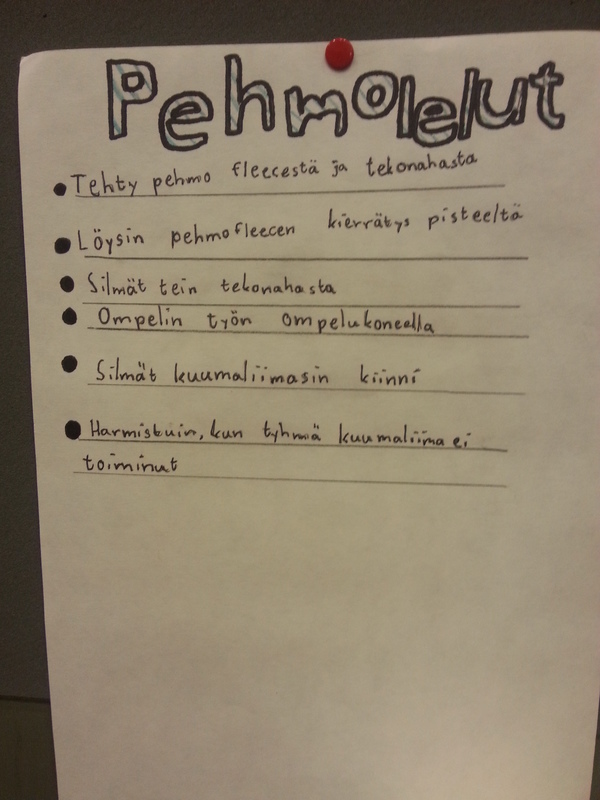 Pehmolelut
Tehty pehmo fleecestä ja tekonahasta
Löysin pehmofleecen kierrätys pisteeltä
Silmät tein tekonahasta
Ompelin työn ompelukoneella
Silmät kuumaliimasin kiinni
Harmistuin, kun tyhmä kuumaliima ei
toiminut